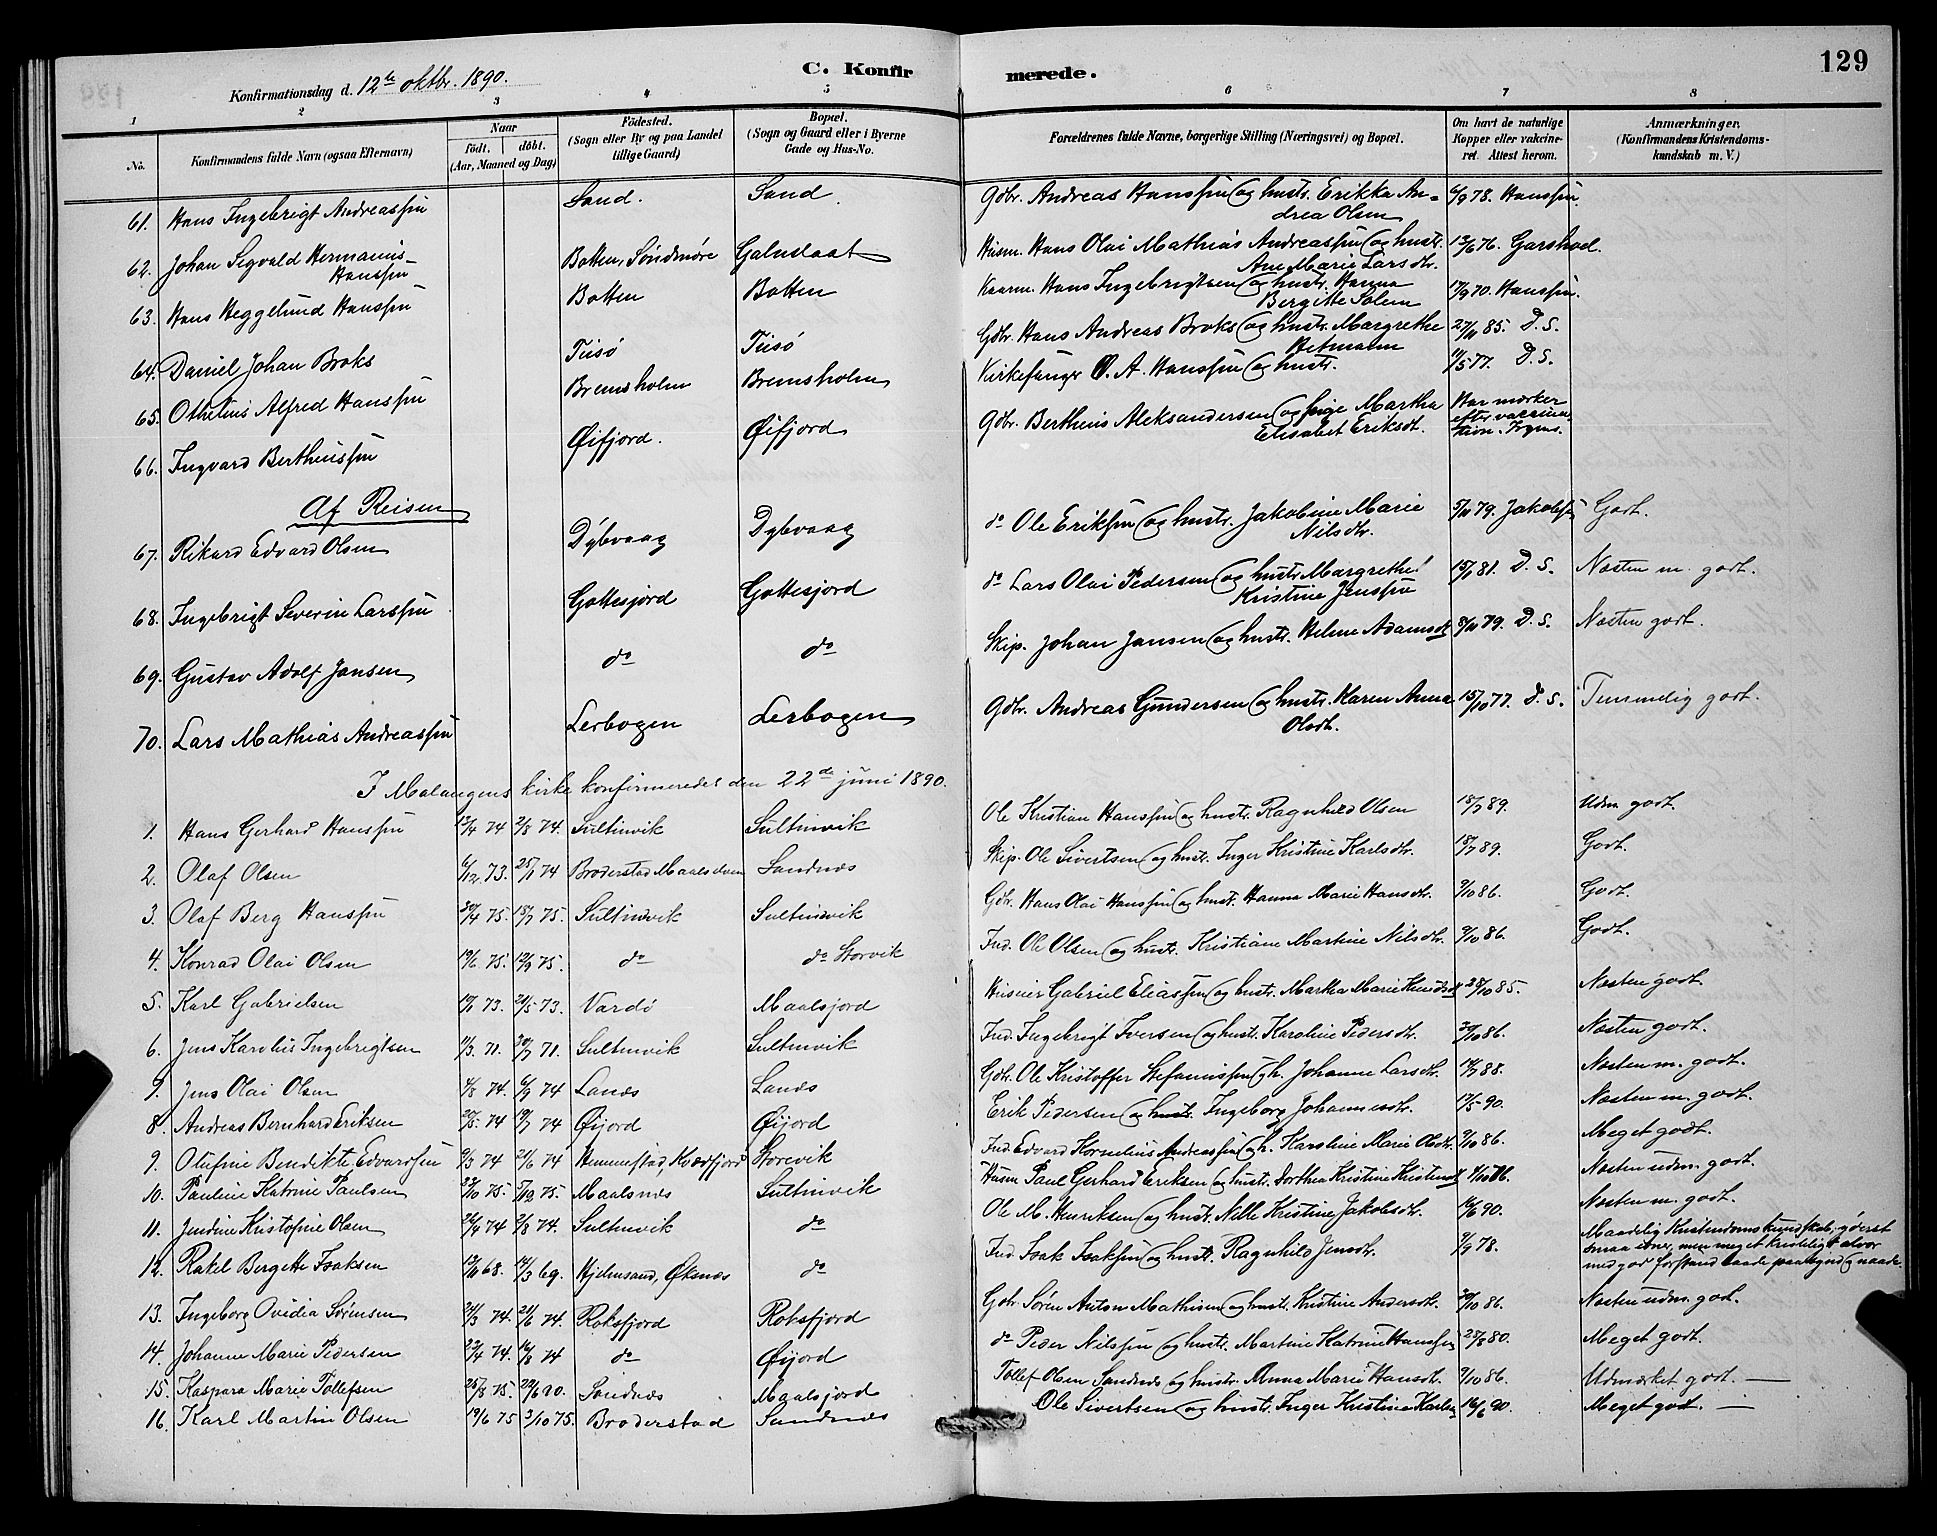 C. Konfirmerede.
129
Konfirmationsdag d. 12te oktbr. 1890.
1 2 3 4 5 6 7 8
No.
Konfirmandens fulde Navn (ogsaa Efternavn)
Naar
födt. döbt.
(Aar, Maaned og Dag)
Födested.
(Sogn eller By og paa Landet
tillige Gaard)
Bopæl.
(Sogn og Gaard eller i Byerne
Gade og Hus-No.
Forældrenes fulde Navne, borgerlige Stilling (Næringsvei) og Bopæl.
Om havt de naturlige
Kopper eller vakcineret. Attest herom.
Anmærkninger.
(Konfirmandens Kristendomskundskab m. V.)
61. Hans Ingebrigt Andreassen Sand. Sand. Gdbr. Andreas Hanssen og hustr. Erikka Andrea Olsen 6/9 78. Hanssen.
62. Johan Sigvald Hermanus Hanssen Botten, Söndmöre Galnslaat Husm. Hans Olai Mathias Andreassen og hustr. Ane Marie Larsdtr. 13/6 76. Garshod.
63. Hans Heggelund Hanssen Botten Botten Kaarm. Hans Ingebrigtsen og hustr. Hanna Bergitte Solem 17/9 70. Hanssen.
64. Daniel Johan Broks Tusö Tusö Gdbr. Hans Andreas Broks og hustr. Margrethe Hetmann 27/11 85. D. S.
65. Othelius Alfred Hanssen Bremsholm Bremsholm Kirkesanger O. A. Hanssen og hustr. 11/5 77. D. S.
66. Ingvard Bertheussen Öifjord. Öifjord Gdbr. Bertheus Aleksandersen og pige Martha Elisabet Eriksdt. Har mærker efter vaccination.
Af Reisen
67. Rikard Edvard Olsen Dybvaag Dybvaag do Ole Eriksen og hustr. Jakobine Marie Nilsdtr. 5/11 79. Jakobsen Godt.
68. Ingebrigt Severin Larssen Gottesjord Gottesjord do Lars Olai Pedersen og hustr. Margrethe Kristine Jenssen 15/1 81. D. S. Næsten m. godt.
69. Gustav Adolf Jansen do do Skip. Johan Jansen og hustr. Helene Adamsdt. 8/11 79. D. S. Næsten godt.
70. Lars Mathias Andreassen Lerbogen Lerbogen Gdbr. Andreas Gundersen og hustr. Karen Anna Olsdt. 15/10 77. D. S. Temmelig godt.
I Malangens kirke konfirmeredes den 22de juni 1890.
1. Hans Gerhard Hanssen 12/4 74 2/8 74. Sultinvik Sultinvik Ole Kristian Hanssen og hustr. Ragnhild Olsen 18/7 89. Udm. godt.
2. Olaf Olsen 6/12 73. 25/1 74 Broderstad Maalselven Sandnæs Skip. Ole Sivertsen og hustr. Inger Kristine Karlsdtr. 18/7 89. Godt.
3. Olaf Berg Hanssen 30/4 75. 18/7 75. Sultinvik Sultinvik Gdbr. Hans Olai Hanssen og hustr. Hanna Marie Hansdtr. 9/10 86. Godt.
4. Konrad Olai Olsen 19/6 75. 12/9 75. do do Storvik Ind. Ole Olsen og hustr. Kristiane Martine Nilsdtr. 9/10 86. Godt.
5. Karl Gabrielsen 17/1 73. 21/5 73. Vardö Maalsjord Huseier Gabriel Eliassen og hustr. Martha Marie Knudsdt. 28/10 85. Næsten godt.
6. Jens Karolius Ingebrigtsen 11/3 71. 30/7 71. Sultinvik Sultinvik Ind. Ingebrigt Iversen og hustr. Karoline Pedersdtr. 30/10 86. Næsten godt.
7. Jens Olai Olsen 4/8 74. 6/9 74 Lanæs Lanæs Gdbr. Ole Kristoffer Stefanussen og h. Johanne Larsdtr. 14/7 88. Næsten m. godt.
8. Andreas Bernhard Eriksen 20/5 74 19/7 74 Öijord Öijord Erik Pedersen og hustr. Ingeborg Johannesdtr. 17/5 90. Næsten m. godt.
9. Olufine Bendikte Edvardsen 9/3 74 21/6 74 Hemmestad, Kvædfjord Storevik Ind. Edvard Kornelius Andreassen og h. Karoline Marie Olsdtr. 9/10 86. Meget godt.
10. Pauline Katrine Paulsen 23/10 75. 5/12 75. Maalsnæs Sultinvik Husm. Paul Gerhard Eriksen og hustr. Dorthea Kristine Kristensdt 9/10 86. Næsten udm. godt.
11. Jendine Kristofine Olsen 26/4 74 2/8 74. Sultinvik do Ole M. Henriksen og hustr. Nelle Kristine Jakobsdtr. 16/6 90. Næsten m. godt.
12. Rakel Bergette Isaksen 13/11 68. 14/3 69. Hjelmsand, Öksnæs do Ind. Isak Isaksen og hustr. Ragnhild Jensdtr. 9/9 78. Maadelig Kristendomskundskab, yderst smaa evner, men meget kristeligt alvor med god forstand baade paa synd og naade.
13. Ingeborg Ovidia Sörensen 21/3 74. 21/6 74. Roksfjord Roksfjord Gdbr. Sören Anton Mathisen og hustr. Kristine Andersdtr. 30/10 86. Næsten udm. godt.
14. Johanne Marie Pedersen 23/4 74. 16/8 74 do Öijord do Peder Nilssen og hustr. Martine Katrine Hanssen 27/8 80. Meget godt.
15. Kaspara Marie Tollefsen 25/8 75. 22/6 90. Sandnæs Maalsjord Tollef Olsen Sandnæs og hustr. Anna Marie Hansdtr. 9/10 86. Udmærket godt. —
16. Karl Martin Olsen 19/6 75 3/10 75. Broderstad Sandnæs Ole Sivertsen og hustr. Inger Kristine Karlsen 16/6 90. Meget godt. —